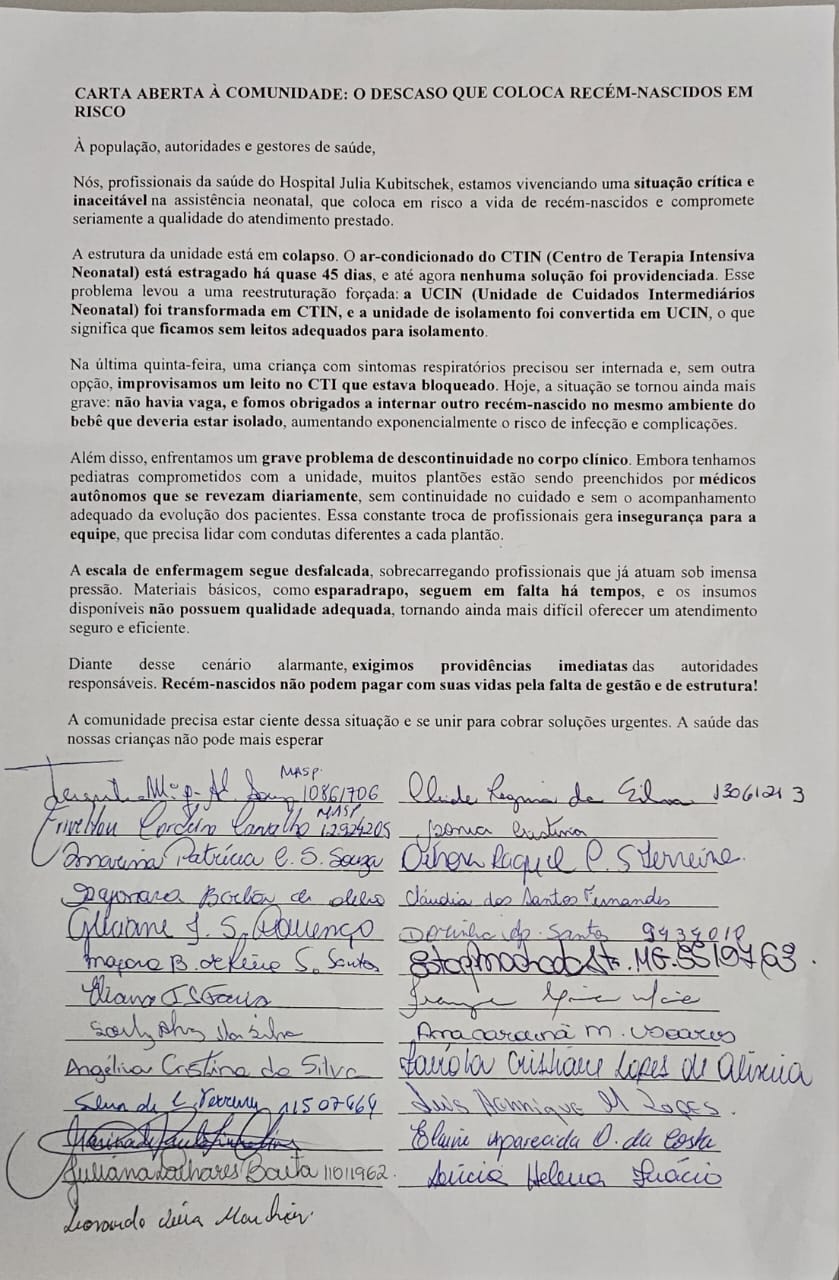 CARTA ABERTA À COMUNIDADE: O DESCASO QUE COLOCA RECÉM-NASCIDOS EM
RISCO
À população, autoridades e gestores de saúde,
Nós, profissionais da saúde do Hospital Julia Kubitschek, estamos vivenciando uma situação crítica e
inaceitável na assistência neonatal, que coloca em risco a vida de recém-nascidos e compromete
seriamente a qualidade do atendimento prestado.
A estrutura da unidade está em colapso. O ar-condicionado do CTIN (Centro de Terapia Intensiva
Neonatal) está estragado há quase 45 dias, e até agora nenhuma solução foi providenciada. Esse
problema levou a uma reestruturação forçada: a UCIN (Unidade de Cuidados Intermediários
Neonatal) foi transformada em CTIN, e a unidade de isolamento foi convertida em UCIN, o que
significa que ficamos sem leitos adequados para isolamento.
Na última quinta-feira, uma criança com sintomas respiratórios precisou ser internada e, sem outra
opção, improvisamos um leito no CTI que estava bloqueado. Hoje, a situação se tornou ainda mais
grave: não havia vaga, e fomos obrigados a internar outro recém-nascido no mesmo ambiente do
bebê que deveria estar isolado, aumentando exponencialmente o risco de infecção e complicações.
Além disso, enfrentamos um grave problema de descontinuidade no corpo clínico. Embora tenhamos
pediatras comprometidos com a unidade, muitos plantões estão sendo preenchidos por médicos
autônomos que se revezam diariamente, sem continuidade no cuidado e sem o acompanhamento
adequado da evolução dos pacientes. Essa constante troca de profissionais gera insegurança para a
equipe, que precisa lidar com condutas diferentes a cada plantão.
A escala de enfermagem segue desfalcada, sobrecarregando profissionais que já atuam sob imensa
pressão. Materiais básicos, como esparadrapo, seguem em falta há tempos, e os insumos
disponíveis não possuem qualidade adequada, tornando ainda mais difícil oferecer um atendimento
seguro e eficiente.
Diante desse cenário alarmante, exigimos providências imediatas das autoridades
responsáveis. Recém-nascidos não podem pagar com suas vidas pela falta de gestão e de estrutura!
A comunidade precisa estar ciente dessa situação e se unir para cobrar soluções urgentes. A saúde das
nossas crianças não pode mais esperar
MASP.
10861706 Regina da Silva 1306121 3
Cordeiro Carvalho MASP 12924205 Cristina
Patrícia C. S. Souza Raquel P. S Ferreira
Cláudia dos Santos Fernandes
J. S. Lourenço Santos 9434010
B. de S. Santos MG.
da Silva M.
Angélica Cristina da Silva Cristiane Lopes de Oliveira
11507464 Luis Henrique M Lopes.
Elaine Aparecida O. da Costa
Juliana 11011962. Lúcia Helena Inácio
Leonardo